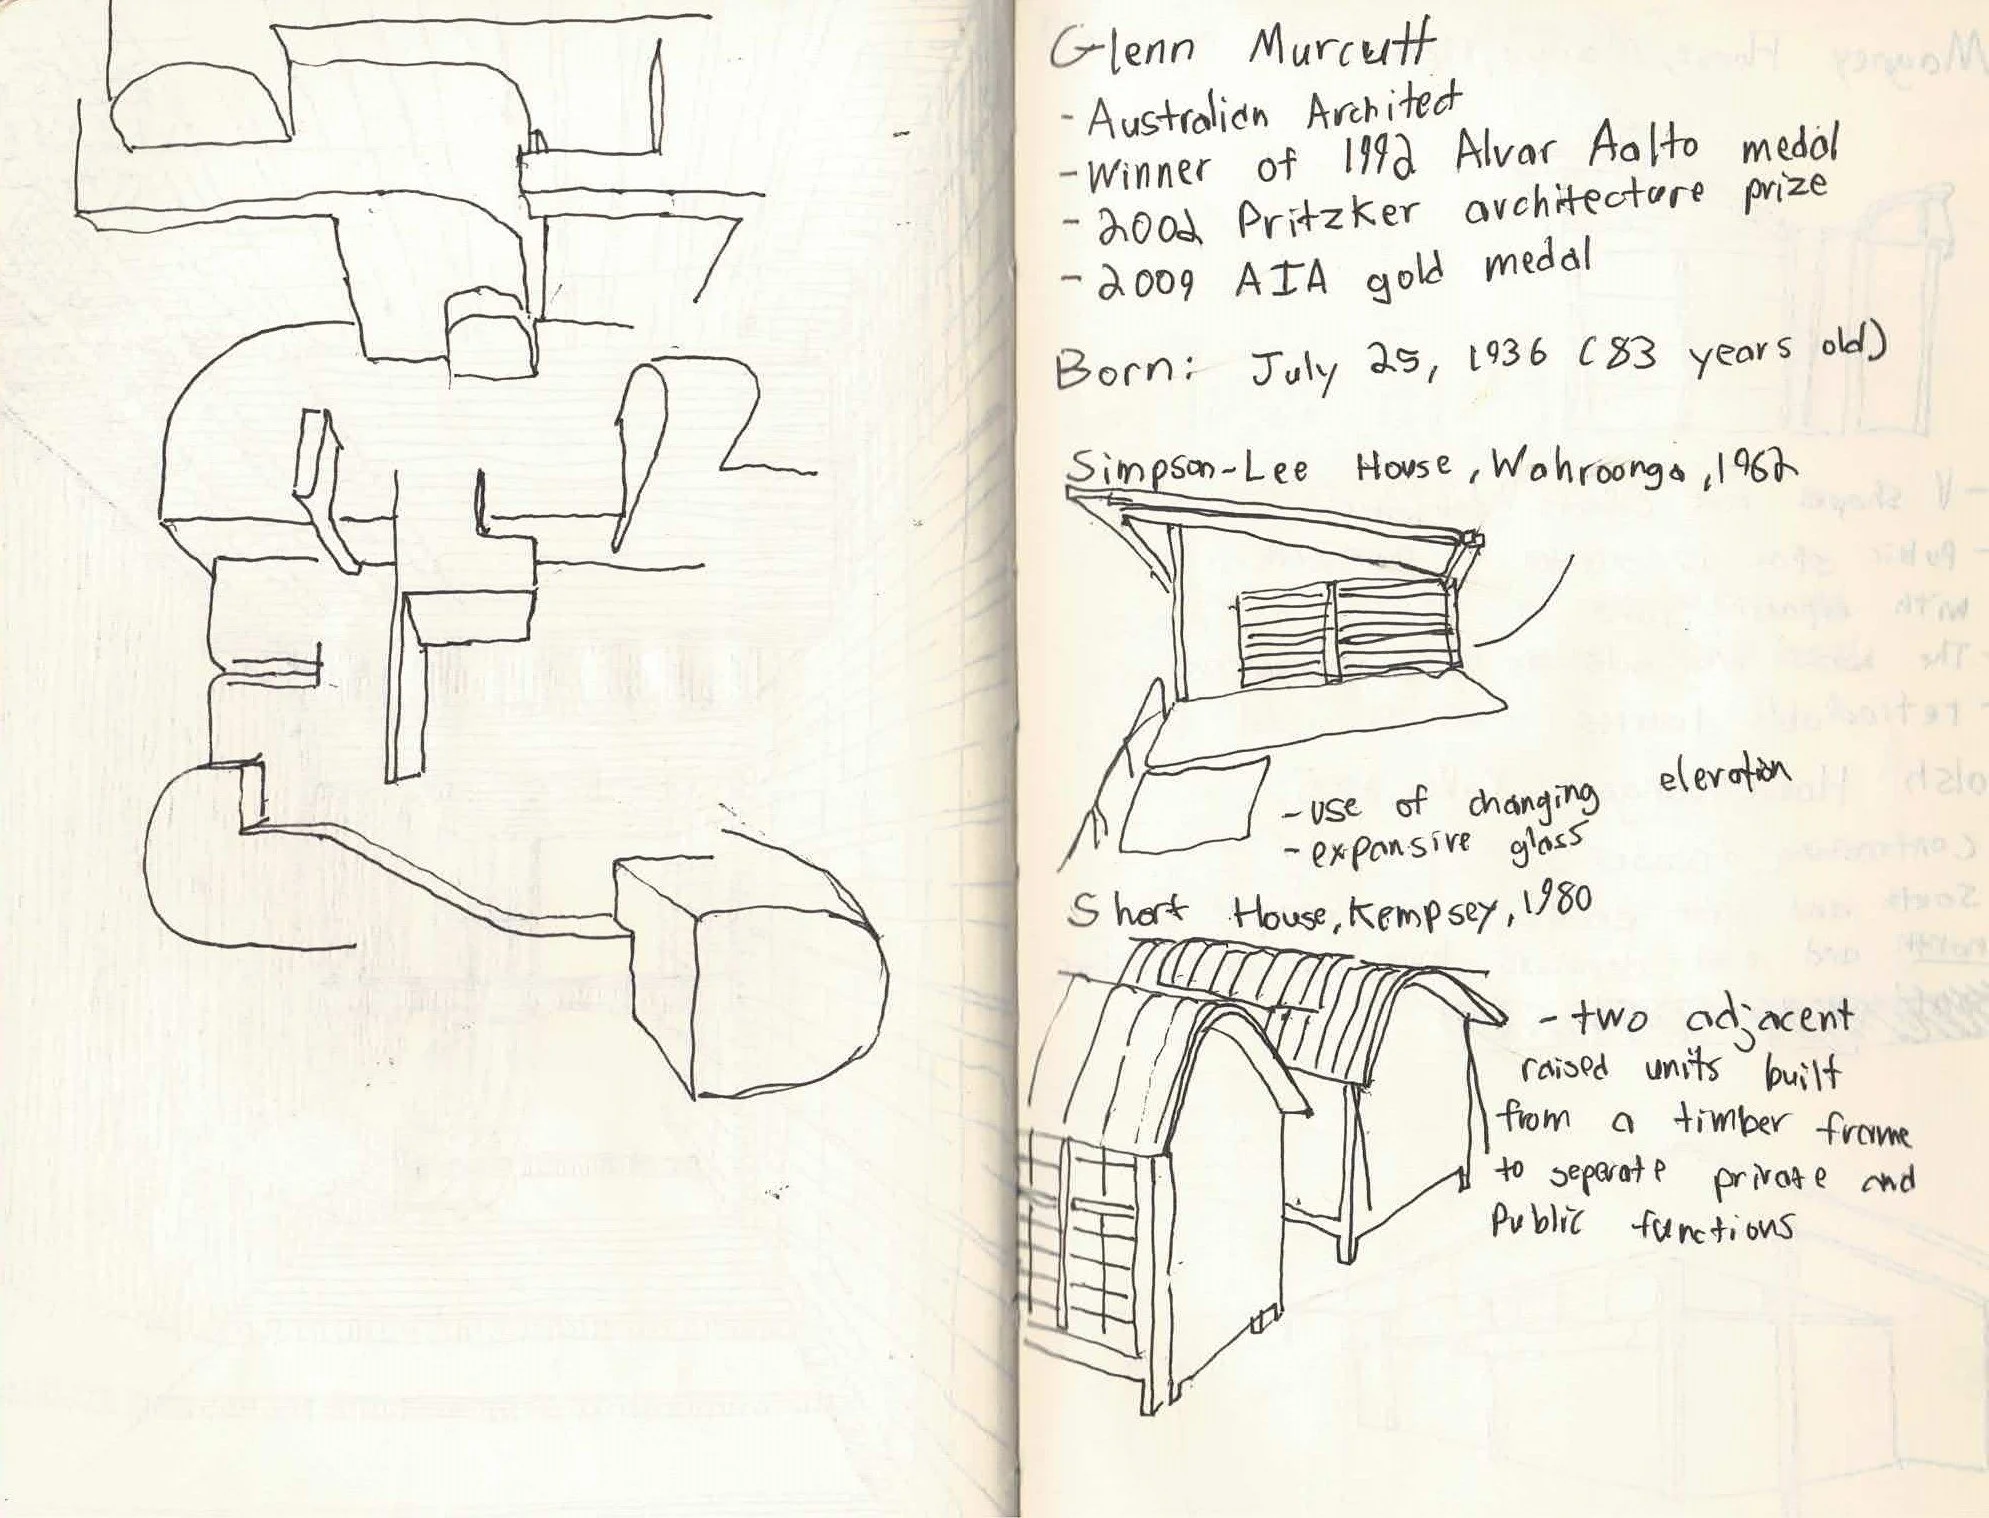 Glenn Murcutt
- Australian Architect
- Winner of 1992 Alvar Aalto medal
- 2002 Pritzker architecture prize
- 2009 AIA gold medal
Born: July 25, 1936 (83 years old)
Simpson-Lee House, Wahroonga, 1962
- use of changing elevation
- expansive glass
Short House, Kempsey, 1980
- two adjacent
raised units built
from a timber frame
to seperate private and
Public functions